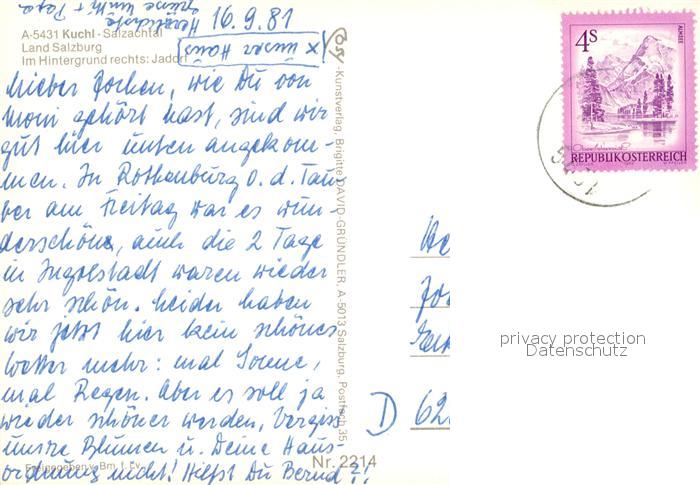 Herzlichste
Grüsse Mutti + Papa
16.9.81
A-5431 Kuchl - Salzachtal
Land Salzburg
Im Hintergrund rechts: Jadorf
(x unser Haus)
Lieber Jochen, wie Du von
Moni gehört hast, sind wir
gut hier unten angekom-
men. In Rothenburg o. d. Tau-
ber am Freitag war es wun-
derschön, auch die 2 Tage
in Ingolstadt waren wieder
sehr schön. Leider haben
wir jetzt hier kein schönes
Wetter mehr: mal Sonne,
mal Regen. Aber es soll ja
wieder schöner werden. Vergiss
unsre Blumen u. Deine Haus-
ordnung nicht! Hilfst Du Bernd?!
Freigegeben v. Bm. f. Lv.
Nr. 2214
Kunstverlag, Brigitte DAVID-GRÜNDLER, A-5013 Salzburg, Postfach 35
4S
ALMSEE
REPUBLIK ÖSTERREICH
He
Jo
D 62
privacy protection
Datenschutz